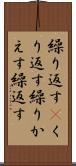 繰り返すく
り返す繰りか
えす繰返す